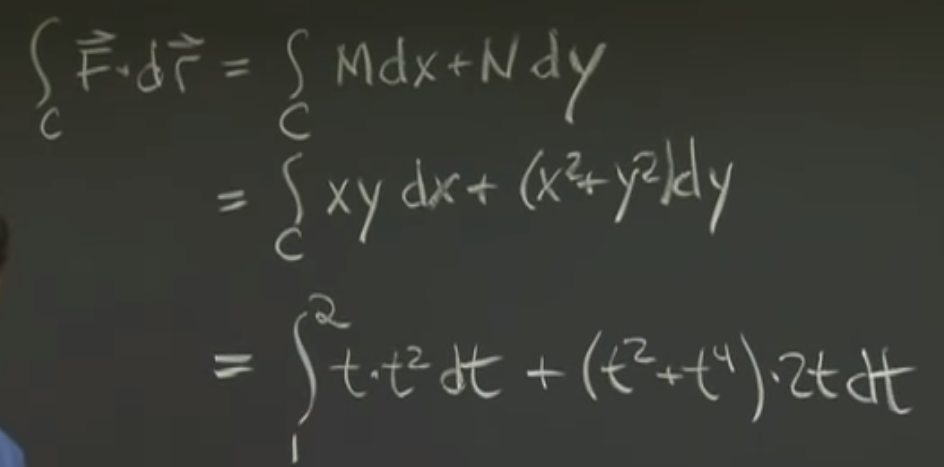 ∫_C F⃗·dr⃗ = ∫_C Mdx+Ndy
= ∫_C xy dx+ (x²+y²)dy
= ∫₁² t·t² dt + (t²+t⁴)·2t dt